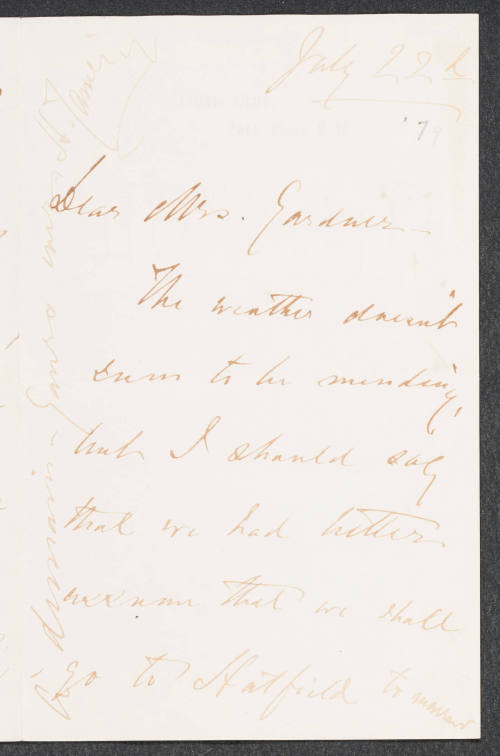 July 22d
'79
Dear Mrs. Gardner
The weather doesn't
seem to be mending,
but I should say
that we had better
assume that we shall
go to Hatfield to morrow
yours ever
H. James Jr